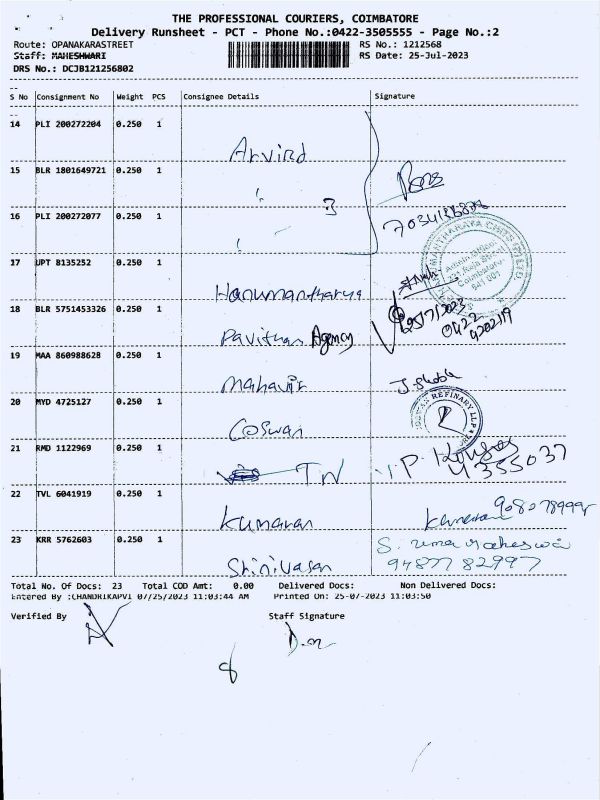 THE PROFESSIONAL COURIERS, COIMBATORE
Delivery Runsheet - PCT - Phone No.:0422-3505555 - Page No.:2
Route: OPANAKARASTREET RS No.: 1212568
Staff: MAHESHWARI RS Date: 25-Jul-2023
DRS No.: DCJB121256802
S No Consignment No Weight PCS Consignee Details Signature
14 PLI 200272204 0.250 1
Arvind
15 BLR 1801649721 0.250 1
16 PLI 200272077 0.250 1
3
17 UPT 8135252 0.250 1
Hanumantharya
18 BLR 5751453326 0.250 1
25/7/2023
0422
4202119
Pavithra Agency
19 MAA 860988628 0.250 1
Mahavir J. Shoba
20 MYD 4725127 0.250 1
Coswan
21 RMD 1122969 0.250 1
TN
22 TVL 6041919 0.250 1
Kumaran
23 KRR 5762603 0.250 1
S. uma maheswari
Shrinivasan 94877 82997
Total No. Of Docs: 23 Total COD Amt: 0.00 Delivered Docs: Non Delivered Docs:
Entered By :CHANDRIKAPVI 07/25/2023 11:03:44 AM Printed On: 25-07-2023 11:03:50
Verified By Staff Signature